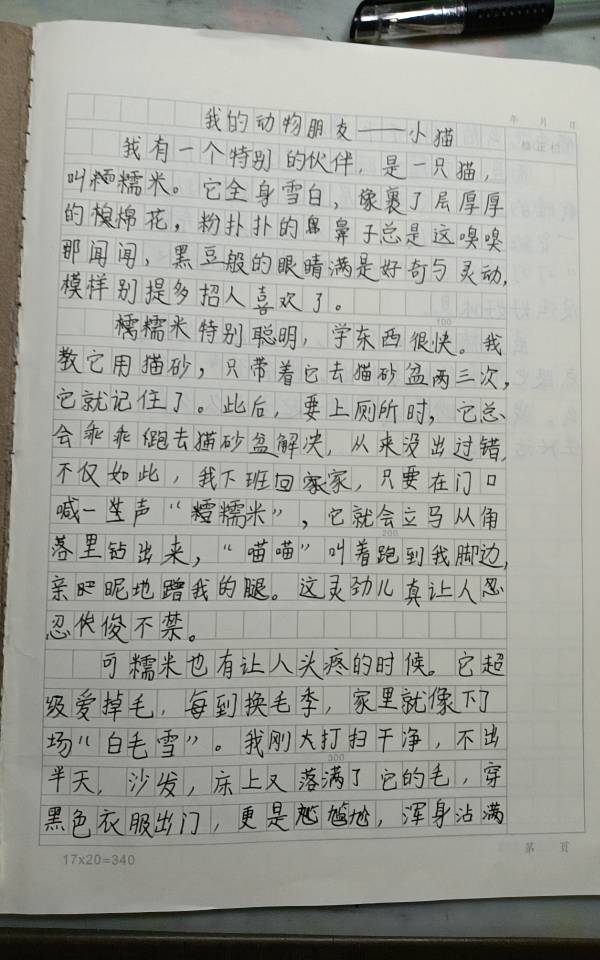 年 月 日
我的动物朋友——小猫
我有一个特别的伙伴，是一只猫，
叫糯米。它全身雪白，像裹了层厚厚
的棉花，粉扑扑的鼻子总是这嗅嗅
那闻闻，黑豆般的眼睛满是好奇与灵动，
模样别提多招人喜欢了。
糯米特别聪明，学东西很快。我
100
教它用猫砂，只带着它去猫砂盆两三次，
它就记住了。此后，要上厕所时，它总
会乖乖跑去猫砂盆解决，从来没出过错，
不仅如此，我下班回家，只要在门口
喊一声“糯米”，它就会立马从角
200
落里钻出来，“喵喵”叫着跑到我脚边，
亲昵地蹭我的腿。这灵劲儿真让人忍
忍俊不禁。
可糯米也有让人头疼的时候。它超
级爱掉毛，每到换毛季，家里就像下了
场“白毛雪”。我刚大打扫干净，不出
300
半天，沙发，床上又落满了它的毛，穿
黑色衣服出门，更是尴尬，浑身沾满
17×20=340
第 页